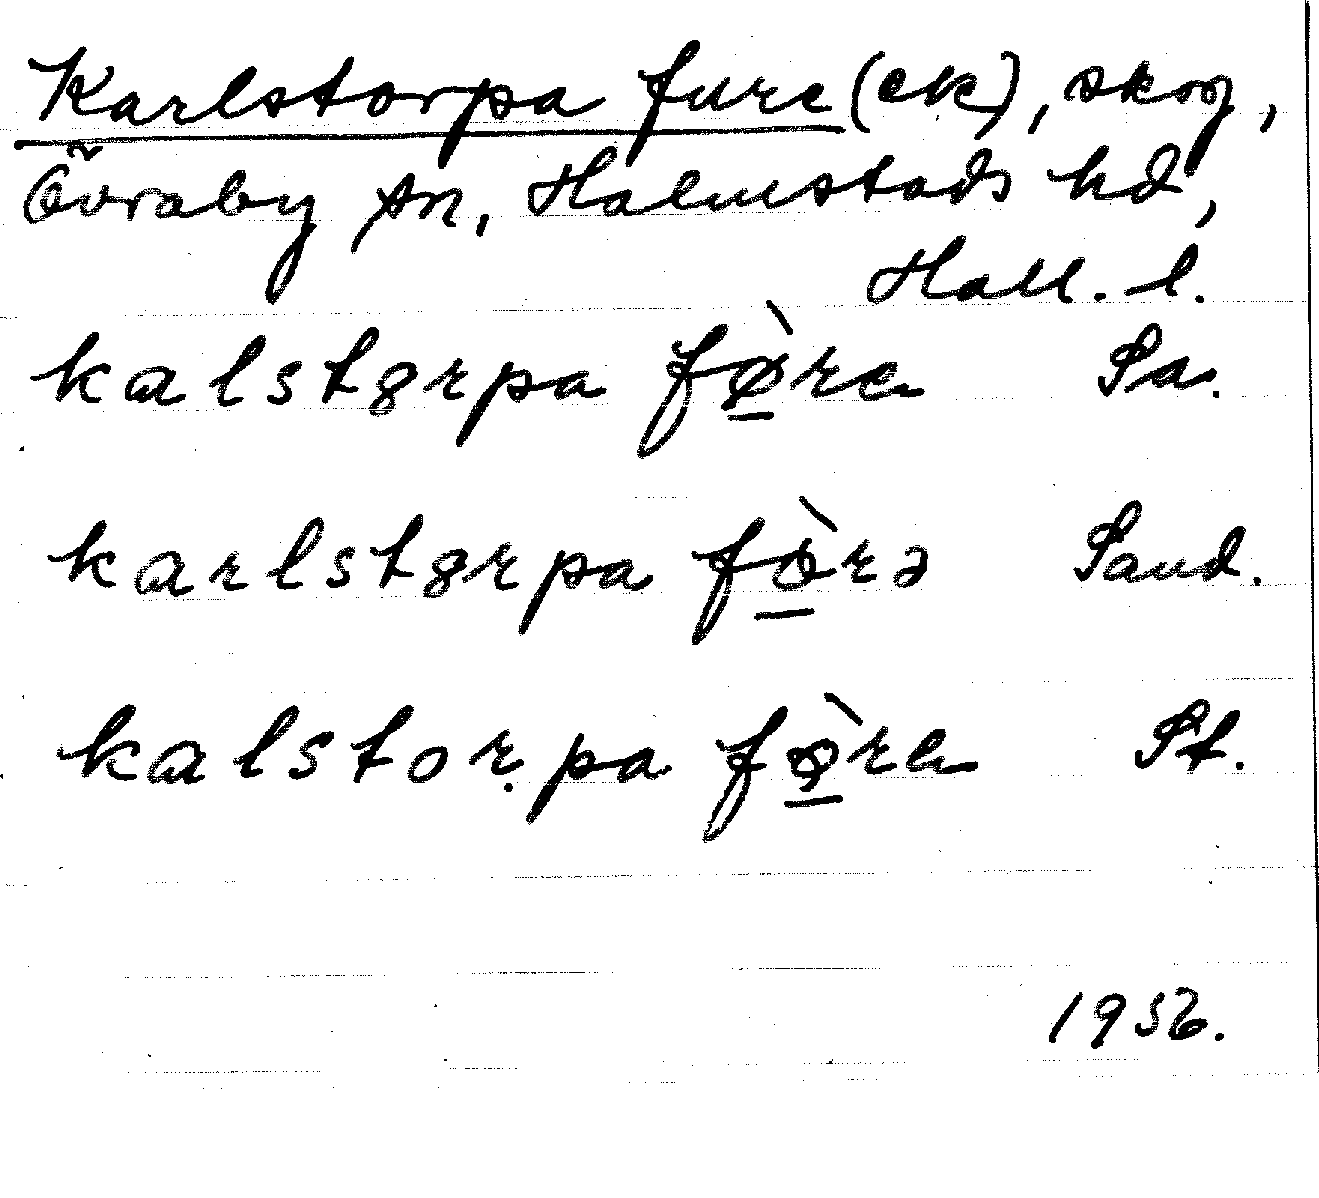 Karlstorpa fure (ek), skog,
Övraby sn, Halmstads hd,
Hall. l.
kalstɞrpa fø̠̀re Sa.
karlstɞrpa fò̠rə Sand.
kalstoṛpa fø̠̀re St.
1956.